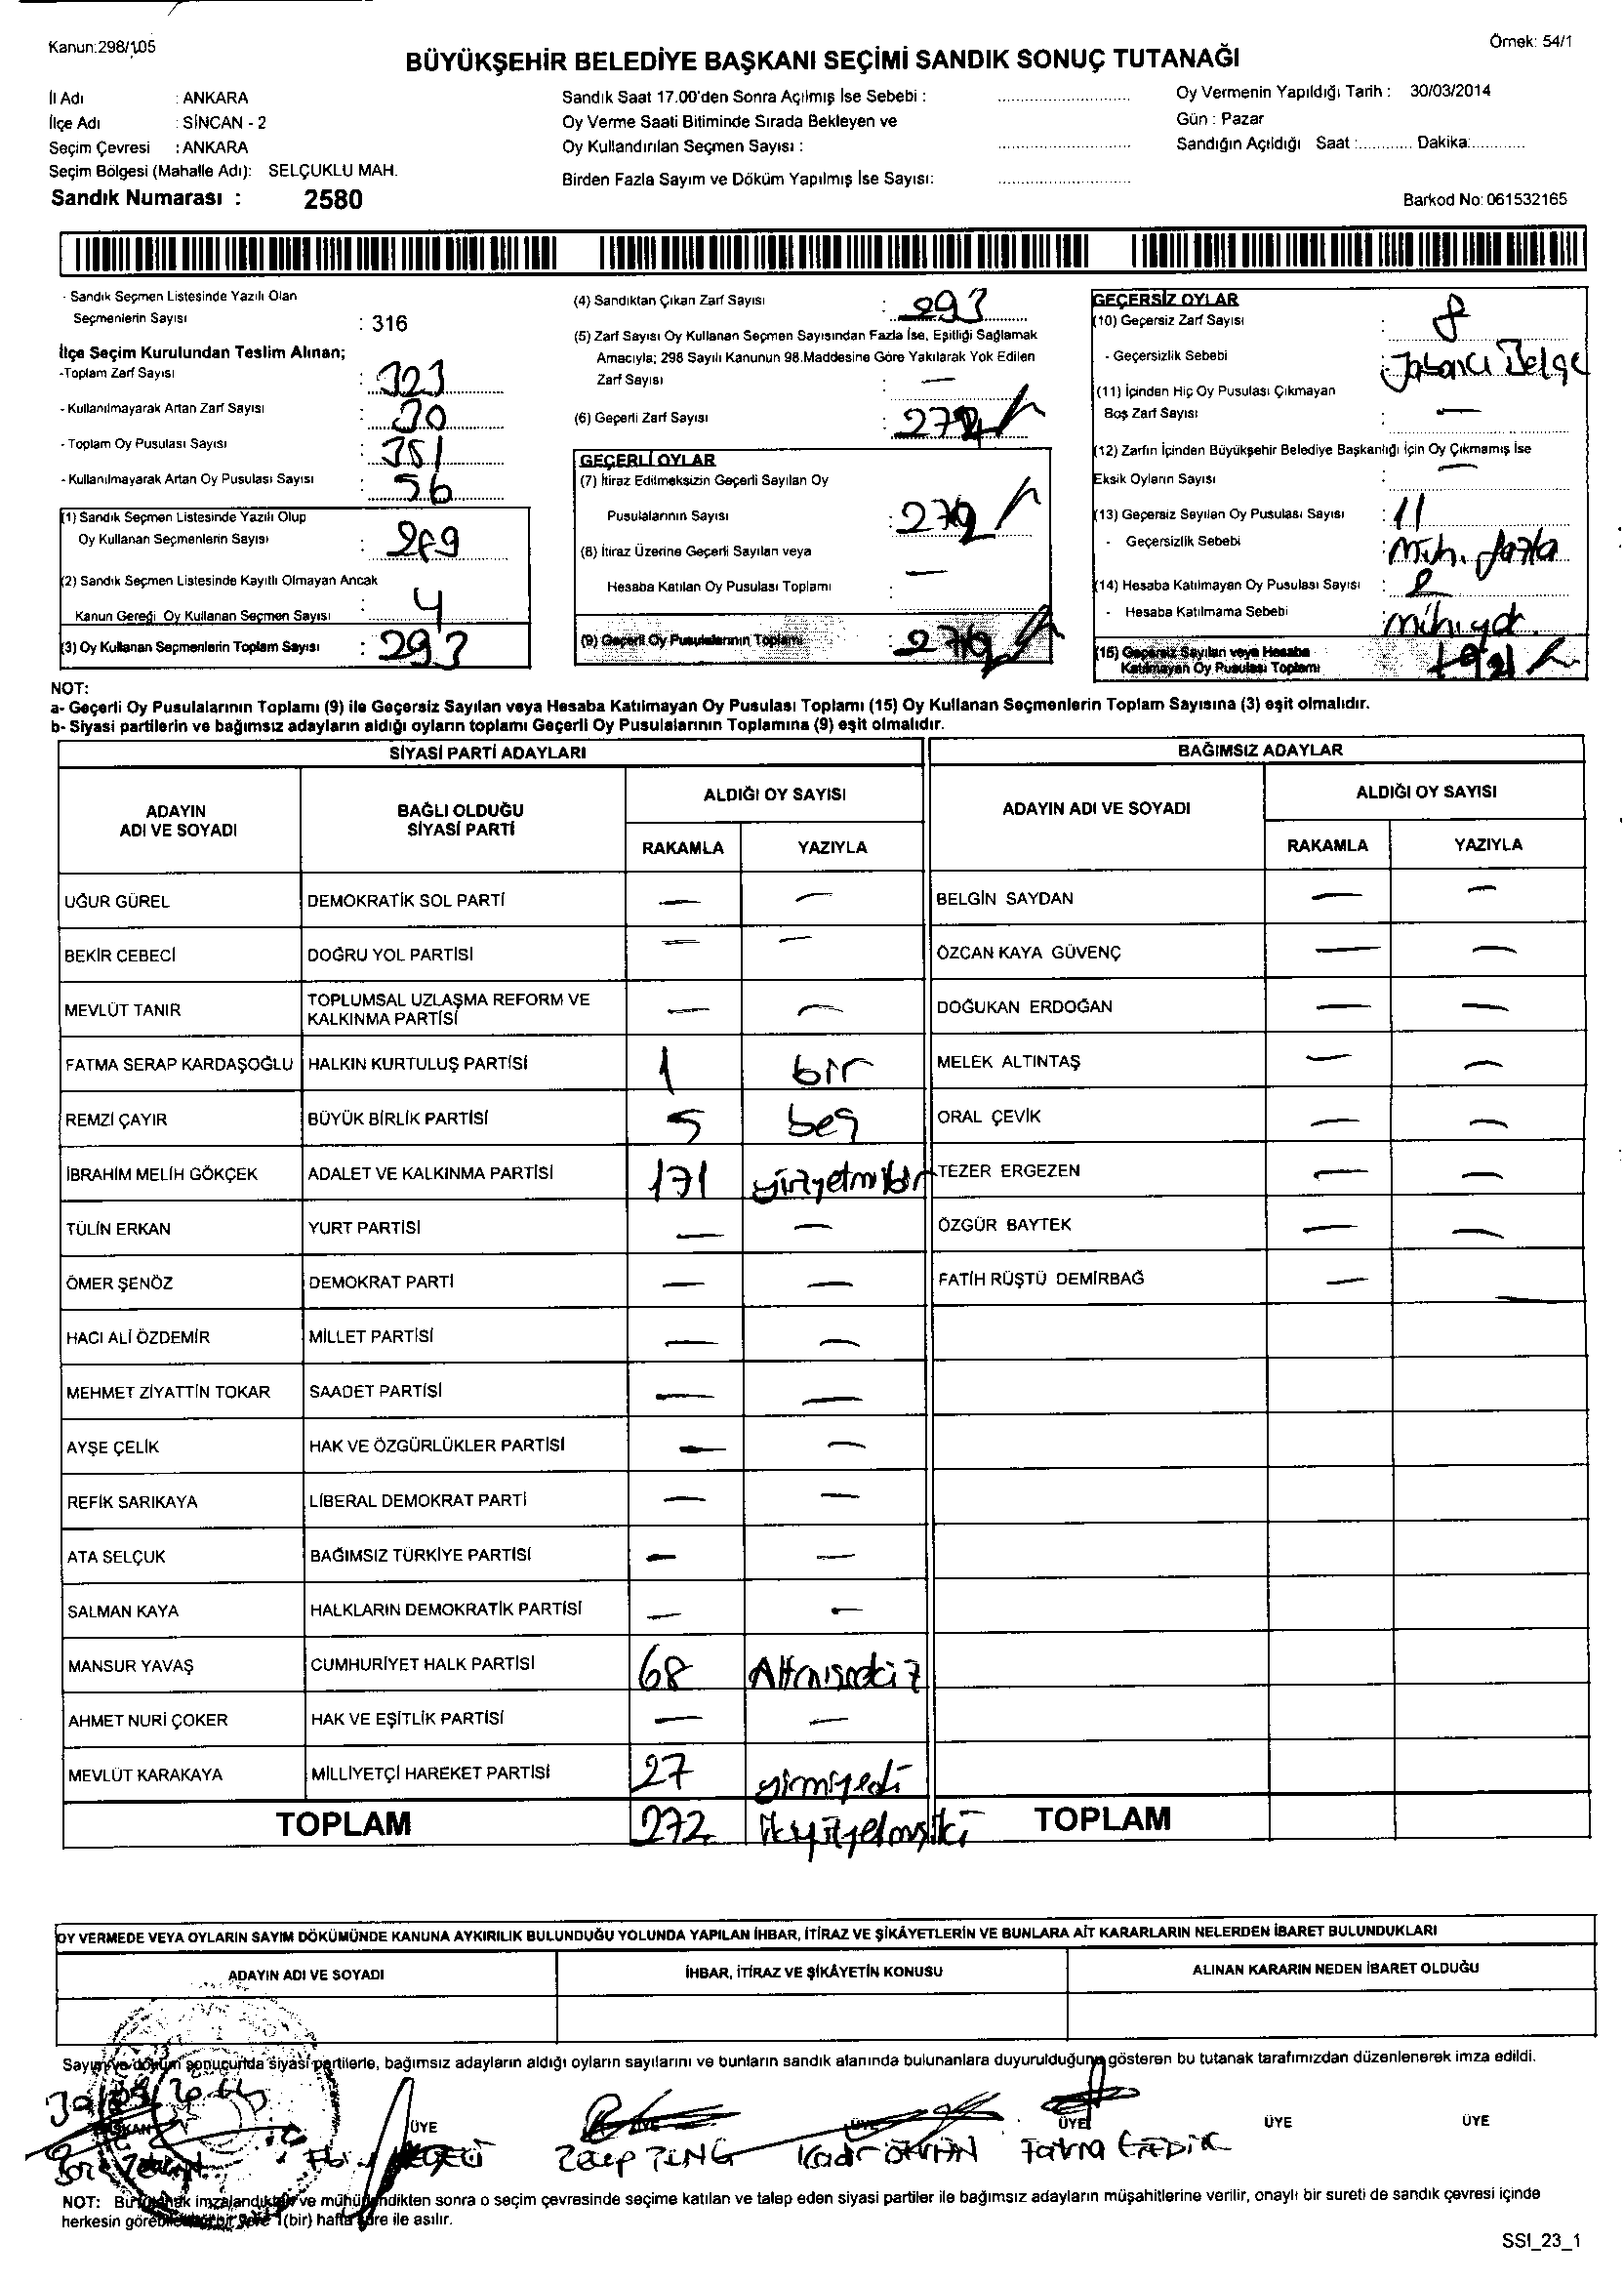 Kanun:298/105
Örnek: 54/1
BÜYÜKŞEHİR BELEDİYE BAŞKANI SEÇİMİ SANDIK SONUÇ TUTANAĞI
İl Adı : ANKARA
İlçe Adı : SİNCAN - 2
Seçim Çevresi : ANKARA
Seçim Bölgesi (Mahalle Adı): SELÇUKLU MAH.
Sandık Numarası : 2580
Sandık Saat 17.00'den Sonra Açılmış İse Sebebi :
Oy Verme Saati Bitiminde Sırada Bekleyen ve
Oy Kullandırılan Seçmen Sayısı :
Birden Fazla Sayım ve Döküm Yapılmış İse Sayısı:
Oy Vermenin Yapıldığı Tarih : 30/03/2014
Gün : Pazar
Sandığın Açıldığı Saat :............ Dakika:............
Barkod No: 061532165
- Sandık Seçmen Listesinde Yazılı Olan
Seçmenlerin Sayısı : 316
İlçe Seçim Kurulundan Teslim Alınan;
-Toplam Zarf Sayısı : 323
- Kullanılmayarak Artan Zarf Sayısı : 30
- Toplam Oy Pusulası Sayısı : 351
- Kullanılmayarak Artan Oy Pusulası Sayısı : 56
(1) Sandık Seçmen Listesinde Yazılı Olup
Oy Kullanan Seçmenlerin Sayısı : 289
(2) Sandık Seçmen Listesinde Kayıtlı Olmayan Ancak
Kanun Gereği Oy Kullanan Seçmen Sayısı : 4
(3) Oy Kullanan Seçmenlerin Toplam Sayısı : 293
(4) Sandıktan Çıkan Zarf Sayısı : 293
(5) Zarf Sayısı Oy Kullanan Seçmen Sayısından Fazla İse, Eşitliği Sağlamak
Amacıyla; 298 Sayılı Kanunun 98.Maddesine Göre Yakılarak Yok Edilen
Zarf Sayısı : —
(6) Geçerli Zarf Sayısı :
GEÇERLİ OYLAR
(7) İtiraz Edilmeksizin Geçerli Sayılan Oy
Pusulalarının Sayısı :
(8) İtiraz Üzerine Geçerli Sayılan veya
Hesaba Katılan Oy Pusulası Toplamı : —
(9) Geçerli Oy Pusulalarının Toplamı :
GEÇERSİZ OYLAR
(10) Geçersiz Zarf Sayısı : 8
- Geçersizlik Sebebi : Belge
(11) İçinden Hiç Oy Pusulası Çıkmayan
Boş Zarf Sayısı : —
(12) Zarfın İçinden Büyükşehir Belediye Başkanlığı İçin Oy Çıkmamış İse
Eksik Oyların Sayısı : —
(13) Geçersiz Sayılan Oy Pusulası Sayısı : 11
- Geçersizlik Sebebi : Müh. fazla
(14) Hesaba Katılmayan Oy Pusulası Sayısı : 2
- Hesaba Katılmama Sebebi : müh. yok
(15) Geçersiz Sayılan veya Hesaba
Katılmayan Oy Pusulası Toplamı :
NOT:
a- Geçerli Oy Pusulalarının Toplamı (9) ile Geçersiz Sayılan veya Hesaba Katılmayan Oy Pusulası Toplamı (15) Oy Kullanan Seçmenlerin Toplam Sayısına (3) eşit olmalıdır.
b- Siyasi partilerin ve bağımsız adayların aldığı oyların toplamı Geçerli Oy Pusulalarının Toplamına (9) eşit olmalıdır.
SİYASİ PARTİ ADAYLARI BAĞIMSIZ ADAYLAR
ADAYIN ADI VE SOYADI BAĞLI OLDUĞU SİYASİ PARTİ ALDIĞI OY SAYISI ADAYIN ADI VE SOYADI ALDIĞI OY SAYISI
RAKAMLA YAZIYLA RAKAMLA YAZIYLA
UĞUR GÜREL DEMOKRATİK SOL PARTİ — — BELGİN SAYDAN — —
BEKİR CEBECİ DOĞRU YOL PARTİSİ — — ÖZCAN KAYA GÜVENÇ — —
MEVLÜT TANIR TOPLUMSAL UZLAŞMA REFORM VE KALKINMA PARTİSİ — — DOĞUKAN ERDOĞAN — —
FATMA SERAP KARDAŞOĞLU HALKIN KURTULUŞ PARTİSİ 1 bir MELEK ALTINTAŞ — —
REMZİ ÇAYIR BÜYÜK BİRLİK PARTİSİ 5 beş ORAL ÇEVİK — —
İBRAHİM MELİH GÖKÇEK ADALET VE KALKINMA PARTİSİ 171 yüzyetmişbir TEZER ERGEZEN — —
TÜLİN ERKAN YURT PARTİSİ — — ÖZGÜR BAYTEK — —
ÖMER ŞENÖZ DEMOKRAT PARTİ — — FATİH RÜŞTÜ DEMİRBAĞ — —
HACI ALİ ÖZDEMİR MİLLET PARTİSİ — —
MEHMET ZİYATTİN TOKAR SAADET PARTİSİ — —
AYŞE ÇELİK HAK VE ÖZGÜRLÜKLER PARTİSİ — —
REFİK SARIKAYA LİBERAL DEMOKRAT PARTİ — —
ATA SELÇUK BAĞIMSIZ TÜRKİYE PARTİSİ — —
SALMAN KAYA HALKLARIN DEMOKRATİK PARTİSİ — —
MANSUR YAVAŞ CUMHURİYET HALK PARTİSİ 68 Altmışsekiz
AHMET NURİ ÇOKER HAK VE EŞİTLİK PARTİSİ — —
MEVLÜT KARAKAYA MİLLİYETÇİ HAREKET PARTİSİ 27 yirmiyedi
TOPLAM 272 ikiyüzyetmişiki TOPLAM
OY VERMEDE VEYA OYLARIN SAYIM DÖKÜMÜNDE KANUNA AYKIRILIK BULUNDUĞU YOLUNDA YAPILAN İHBAR, İTİRAZ VE ŞİKÂYETLERİN VE BUNLARA AİT KARARLARIN NELERDEN İBARET BULUNDUKLARI
ADAYIN ADI VE SOYADI İHBAR, İTİRAZ VE ŞİKÂYETİN KONUSU ALINAN KARARIN NEDEN İBARET OLDUĞU
Sayım ve döküm sonucunda siyasi partilerle, bağımsız adayların aldığı oyların sayılarını ve bunların sandık alanında bulunanlara duyurulduğunu gösteren bu tutanak tarafımızdan düzenlenerek imza edildi.
BAŞKAN ÜYE ÜYE ÜYE ÜYE ÜYE ÜYE
NOT: Bu tutanak imzalandıktan ve mühürlendikten sonra o seçim çevresinde seçime katılan ve talep eden siyasi partiler ile bağımsız adayların müşahitlerine verilir, onaylı bir sureti de sandık çevresi içinde
herkesin görebileceği bir yere 1(bir) hafta süre ile asılır.
SSI_23_1